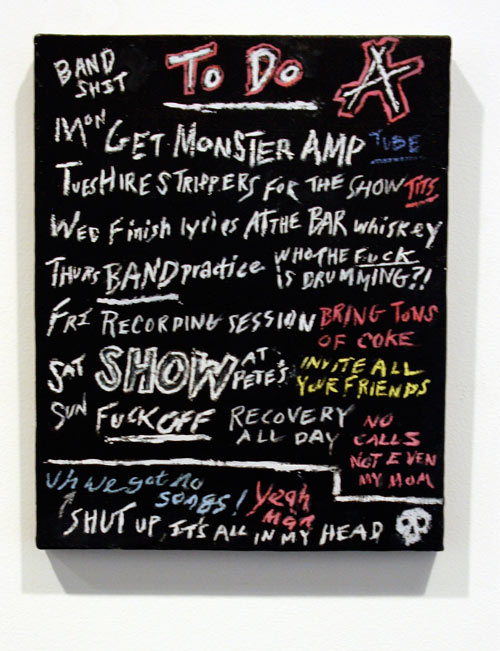 BAND SHIT
To Do
A
MON GET MONSTER AMP TUBE
TUES HIRE STRIPPERS FOR THE SHOW TITS
WED Finish lyrics AT THE BAR whiskey
THURS BAND practice WHO THE FUCK
IS DRUMMING?!
FRI RECORDING SESSION BRING TONS
OF COKE
SAT SHOW AT PETE'S INVITE ALL
YOUR FRIENDS
SUN FUCK OFF RECOVERY
ALL DAY
NO
CALLS
NOT EVEN
MY MOM
Uh we got no
SONGS!
Yeah
Man
SHUT UP, IT'S ALL IN MY HEAD